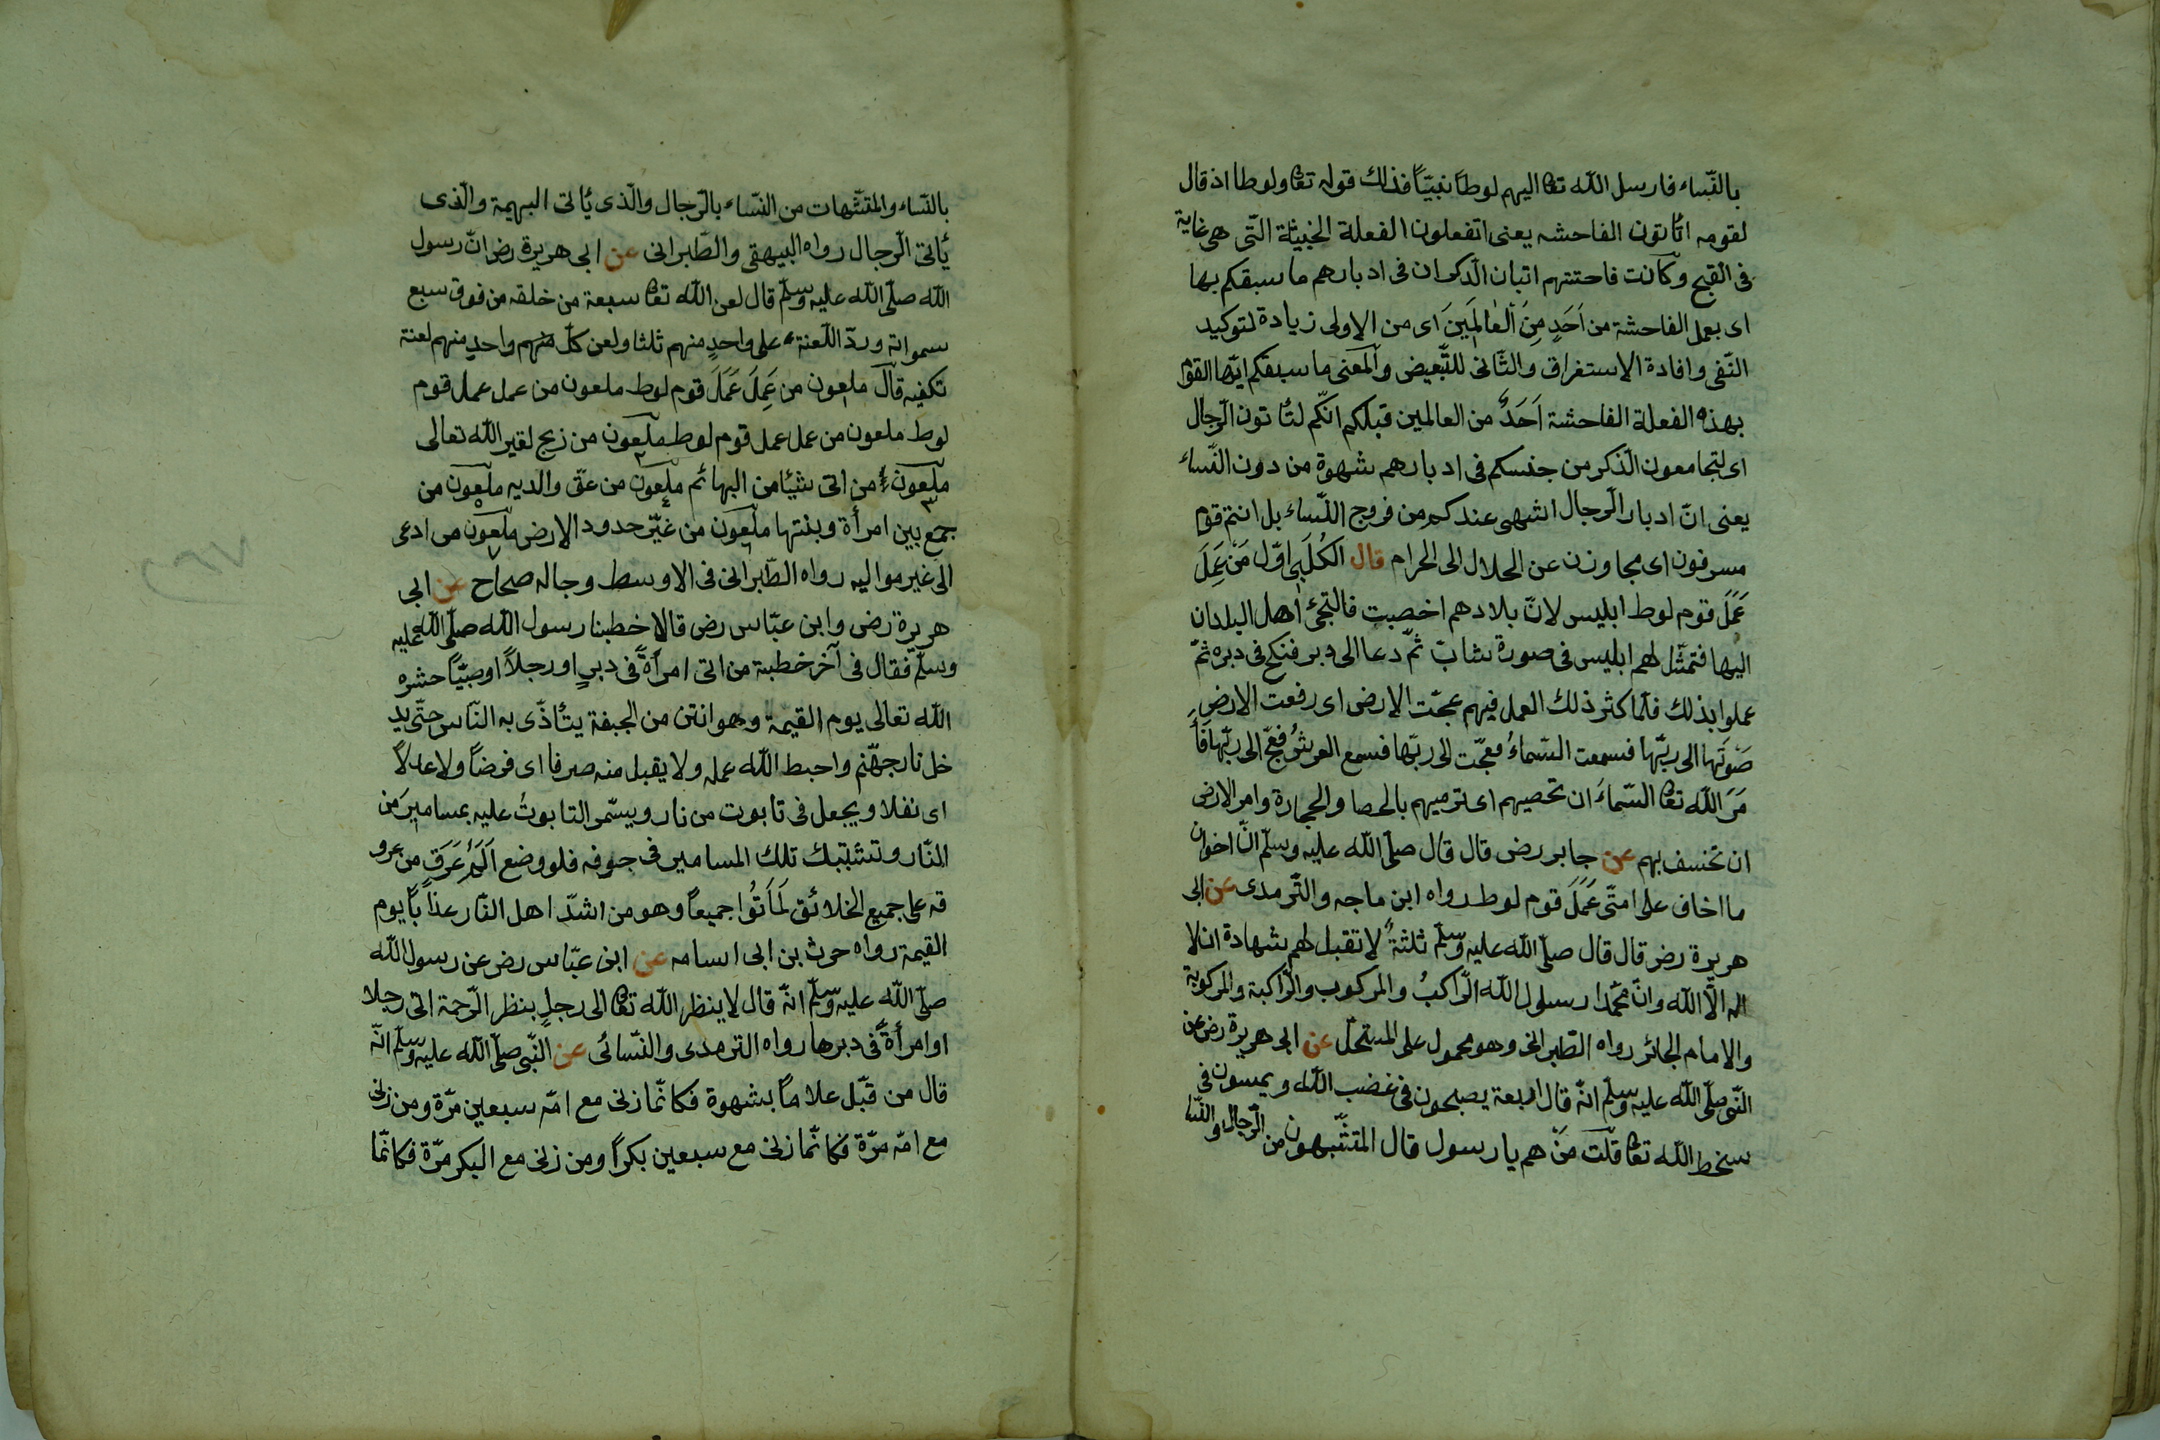 بالنّساء فارسل الله تعا اليهم لوطاً نبيّاً فذلك قوله تعا ولوطا اذ قال
لقومه اتأتون الفاحشه يعنى اتفعلون الفعلة الخبيثة الّتى هى غاية
فى القبح وكانت فاحشتهم اتيان الذّكران فى ادبارهم ما سبقكم بها
اى بعمل الفاحشة من اَحَدٍ مِنَ الْعٰالَمِينَ اى من الاولى زيادة لتوكيد
النّفى وافادة الاستغراق والثّانى للتّبعيض والمعنى ما سبقكم ايّها القوم
بهذه الفعلة الفاحشة اَحَدٌ من العالمين قبلكم انّكم لتأتون الرّجال
اى لتجامعون الذّكر من جنسكم فى ادبارهم شهوة من دون النّساء
يعنى انّ ادبار الرّجال اشهى عندكم من فروج النّساء بل انتم قوم
مسرفون اى مجاوزن عن الحلال الى الحرام قال الكُلَبِى اوّل مَنْ عَمِلَ
عَمَلَ قوم لوط ابليس لانّ بلادهم اخصبت فالتجئ اهل البلدان
اليها فتمثّل لهم ابليس فى صورة شابّ ثمّ دعا الى دبر فنكح فى دبره ثمّ
عملوا بذلك فلمّا كثر ذلك العمل فيهم عجّت الارض اى رفعت الارض
صَوْتَها الى ربّها فسمعت السّماءُ فعجّت الى ربّها فسمع العرشُ فعجّ الى ربّها فأ
مَرَ الله تعا السّماءَ ان تحصيهم اى ترميهم بالحصا والحجارة وامر الارض
ان تخسف بهم عن جابر رض قال قال صلّى الله عليه وسلّم انّ اخوان
ما اخاف على امتّى عَمَلَ قوم لوط رواه ابن ماجه والتّرمدى عن ابى
هريرة رض قال قال صلّى الله عليه وسلّم ثلثةٌ لا تقبل لهم شهادة ان لا
اله الّا الله وانّ محمّدا رسول الله الرّاكبُ والمركوب والرّاكبة والمركوبة
والامام الجائر رواه الطّبرانى وهو محمول على المستحلّ عن ابى هريرة رض عن
النّبى صلّى الله عليه وسلّم انّه قال اربعة يصبحون فى غضب الله ويمسون فى
سخط الله تعا قلت مَنْ هم يا رسول قال المتشّبهون من الرّجال والنّسا
بالنّساء والمتشّبهات من النّساء بالرّجال والّذى يأتى البهيمة والّذى
يأتى الرّجال رواه البيهقى والطّبرانى عن ابى هريرة رض انّ رسول
الله صلّى الله عليه وسلّم قال لعن الله تعا سبعة من خلقه من فوق سبع
سمواته وردّ اللّعنة على واحدٍ منهم ثلثا ولعن كلّ منهم واحدٍ منهم لعنة
تكفيه قال ملعون من عَمِلَ عَمَلَ قوم لوط ملعون من عمل عمل قوم
لوط ملعون من عمل عمل قوم لوط ملعون من زبح لغير الله تعالى
ملعون من اتى شيئا من البهائم ملعون من عقّ والديه ملعون من
جمع بين امرأة وبنتها ملعون من غيّر حدود الارض ملعون من ادعى
الى غير مواليه رواه الطّبرانى فى الاوسط وجاله صحاح عن ابى
هريرة رض وابن عبّاس رض قالا خطبنا رسول الله صلّى الله عليه
وسلّم فقال فى آخر خطبة من اتى امرأةً فى دبرٍ او رجلاً او صبّياً حشره
الله تعالى يوم القيمة وهو انتن من الجيفة يتأذّى به النّاس حتّى يد
خل نار جهّنم واحبط الله عمله ولا يقبل منه صرفا اى فرضاً ولا عدلاً
اى نفلا ويجعل فى تابوت من نار ويسّمر التابوتُ عليه بمساميرَ من
النّار وتشتبك تلك المسامير فى جوفه فلو وضع اَلَمُ عَرَقٍ من عرو
قه على جميع الخلائق لَمَاتُوا جميعاً وهو من اشدّ اهل النّار عذاباً يوم
القيمة رواه حرث بن ابى اسامه عن ابن عبّاس رض عن رسول الله
صلّى الله عليه وسلّم انّه قال لا ينظر الله تعا الى رجلٍ بنظر الرّحمة اتى رجلا
او امرأةً فى دبرها رواه الترمدى والنّسائى عن النّبى صلّى الله عليه وسلّم انّه
قال من قبّل علاماً بشهوة فكانّما زنى مع امّه سبعين مرّة ومن زنى
مع امّه مرّة فكانّما زنى مع سبعين بكراً ومن زنى مع البكر مرّة فكانّما